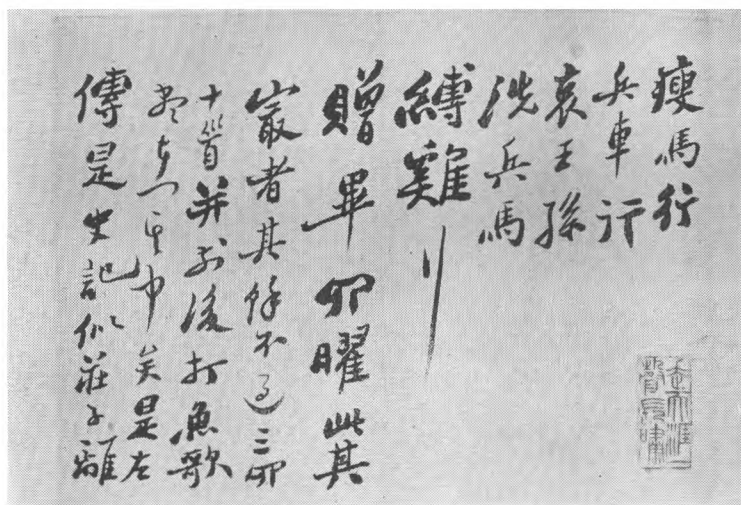 瘦馬行
兵車行
哀王孫
洗兵馬
縛雞行
贈畢四曜此其
最者其餘不過三四
十首并前後打魚歌
盡在其中矣是左
傳是史記似莊子離